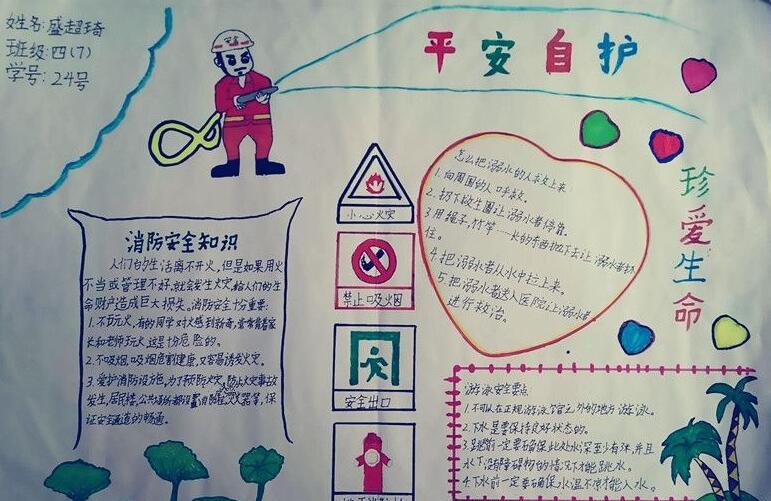 姓名:盛超琦
班级:四(7)
学号:24号
平安自护
珍爱生命
消防安全知识
人们的生活离不开火,但是如果用火
不当或管理不好,就会发生火灾,给人们的生
命财产造成巨大损失。消防安全十分重要:
1.不玩火,有的同学对火感到新奇,常常背着家
长和老师玩火,这是十分危险的。
2.不吸烟,吸烟危害健康,又容易诱发火灾。
3.爱护消防设施,为了预防火灾,防止火灾事故
发生,居民楼,公共场所都设置消防栓,灭火器等,保
证安全通道的畅通。
小心火灾
禁止吸烟
安全出口
怎么把溺水的人救上来
1.向周围的人呼救。
2.扔下救生圈让溺水者停靠
3.用绳子,竹竿……长的东西抛下去让溺水者抓
住。
4.把溺水者从水中拉上来。
5.把溺水者送入医院让溺水者
进行救治。
游泳安全要点
1.不可以在正规游泳馆之外的地方游泳。
2.下水是要保持良好状态的。
3.跳前一定要确保此处水深至少有米,并且
水下没有障碍物的情况下才能跳水。
4.下水前一定要确保水温不凉才能入水。